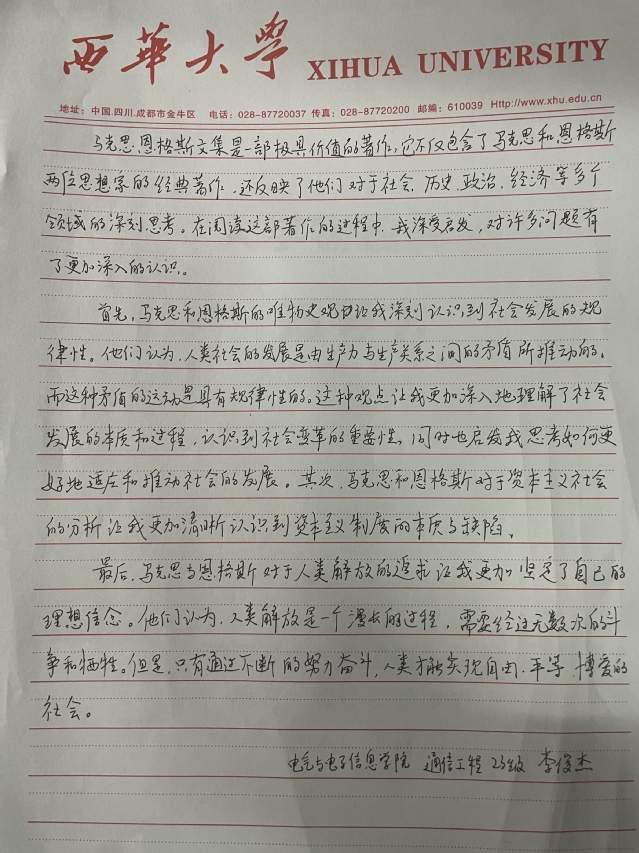 西華大學 XIHUA UNIVERSITY
地址：中国.四川.成都市金牛区 电话：028-87720037 传真：028-87720200 邮编：610039 Http://www.xhu.edu.cn
马克思恩格斯文集是一部极具价值的著作，它不仅包含了马克思和恩格斯
两位思想家的经典著作，还反映了他们对于社会、历史、政治、经济等多个
领域的深刻思考。在阅读这部著作的过程中，我深受启发，对许多问题有
了更加深入的认识。
首先，马克思和恩格斯的唯物史观让我深刻认识到社会发展的规
律性。他们认为，人类社会的发展是由生产力与生产关系之间的矛盾所推动的，
而这种矛盾的运动是具有规律性的。这种观点让我更加深入地理解了社会
发展的本质和过程，认识到社会变革的重要性，同时也启发我思考如何更
好地适应和推动社会的发展。其次，马克思和恩格斯对于资本主义社会
的分析让我更加清晰认识到资本主义制度的本质与缺陷。
最后，马克思与恩格斯对于人类解放的追求让我更加坚定了自己的
理想信念。他们认为，人类解放是一个漫长的过程，需要经过无数次的斗
争和牺牲。但是，只有通过不断的努力奋斗，人类才能实现自由、平等、博爱的
社会。
电气与电子信息学院 通信工程 23级 李俊杰